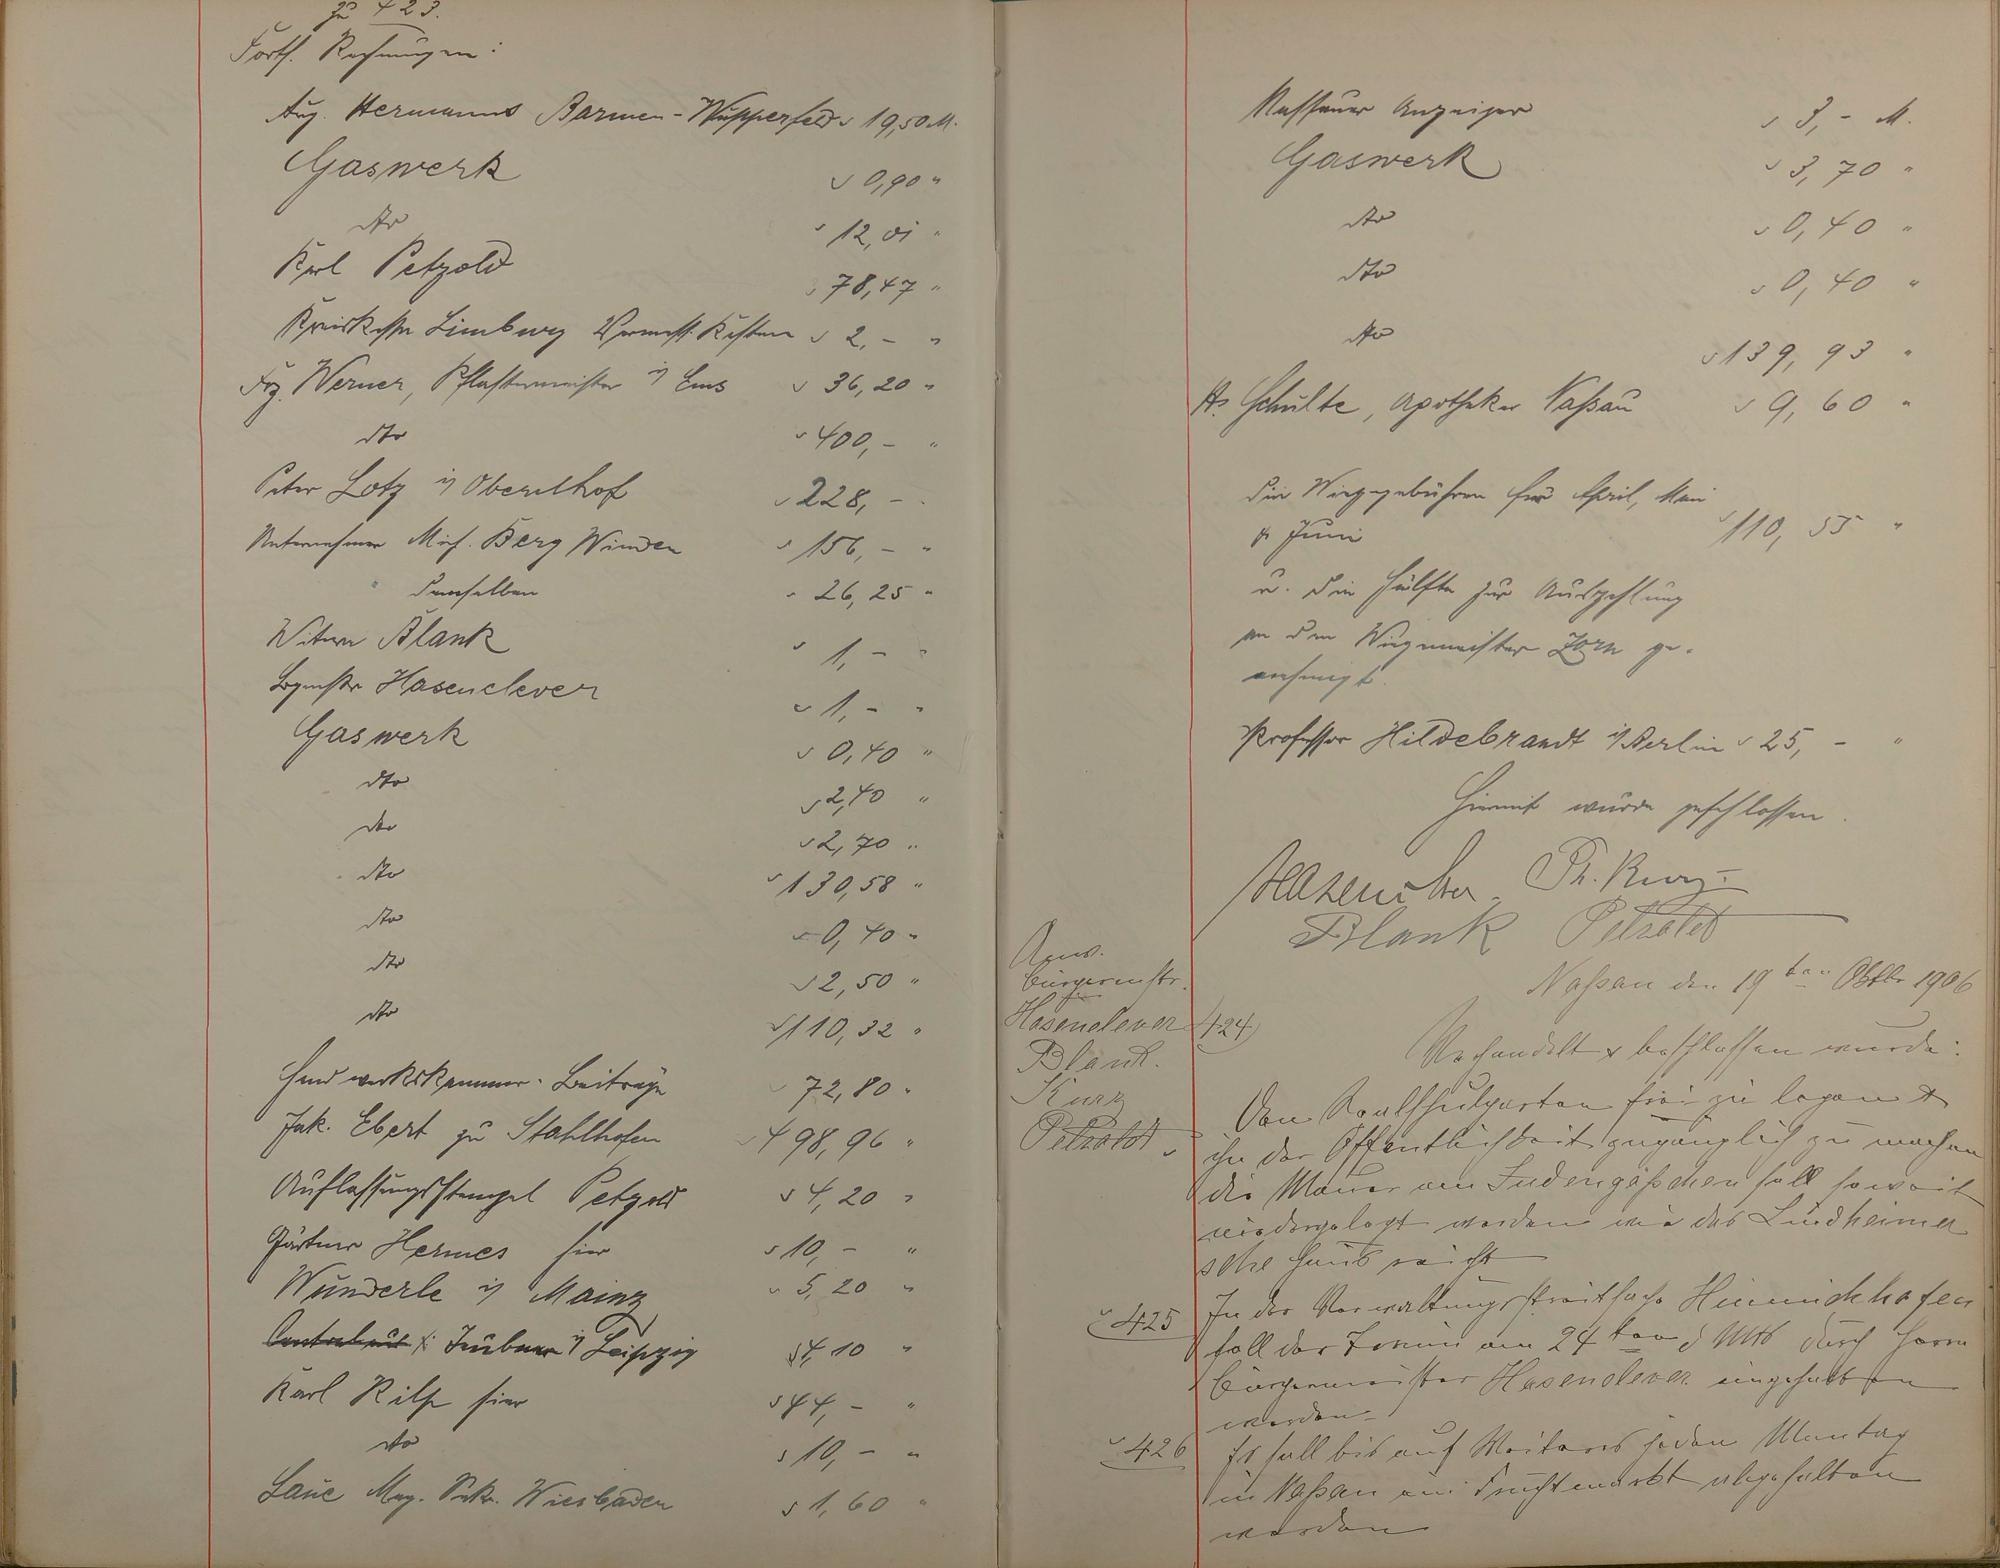 zu 423.
Fortf. Rechnungen:
Aug. Hermanns Barmen-Wupperfeld 19,50 M.
Gaswerk 0,90 "
dto 12,01 "
Karl Petzold 78,47 "
Kreiskasse Limburg Vermess. Kosten 2,- "
Frz. Werner, Pflastermeister i/ Ems 36,20 "
dto 400,- "
Peter Lotz i/ Oberelhof 228,- "
Unternehmer Mich. Berg Winden 156,- "
demselben 26,25 "
Witwe Blank 1,- "
Bgmstr Hasenclever 1,- "
Gaswerk 0,40 "
dto 2,40 "
dto 2,70 "
dto 130,58 "
dto 0,40 "
dto 2,50 "
dto 110,32 "
Handwerkskammer-Beiträge 72,80 "
Jak. Ebert zu Stahlhofen 498,96 "
Auflassungsstempel Petzold 4,20 "
Gärtner Hermes hier 10,- "
Wunderle i/ Mainz 5,20 "
Trübner i/ Leipzig 4,10 "
Karl Rilp hier 44,- "
dto 10,- "
Laue Mag. Sekr. Wiesbaden 1,60 "
Nassauer Anzeiger 3,- M.
Gaswerk 3,70 "
dto 0,40 "
dto 0,40 "
dto 139,93 "
A. Schulte, Apotheker Naßau 9,60 "
Die Wiegegebühren für April, Mai
& Juni 110,55 "
u. die Hälfte zur Auszahlung
an den Wiegemeister Zorn ge-
nehmigt.
Professor Hildebrandt i/ Berlin 25,- "
Hiermit wurde geschlossen.
Hasenclever Ph. Kurz
Blank Petzoldt
Naßau den 19ten Oktbr 1906
Anw.
Bürgermstr.
Hasenclever
Blank.
Kurz
Petzoldt
424
Verhandelt & beschlossen wurde:
Den Realschulgarten frei zu legen &
ihn der Öffentlichkeit zugänglich zu machen
die Mauer am Judengäßchen soll soweit
niedergelegt werden wie das Lindheimer
sche Haus reicht
425 In der Verwaltungsstreitsache Himmichhofen
soll der Termin am 24ten d Mts durch Herrn
Bürgermeister Hasenclever eingehalten
werden
426 Es soll bis auf Weiteres jeden Montag
in Naßau ein Fruchtmarkt abgehalten
werden